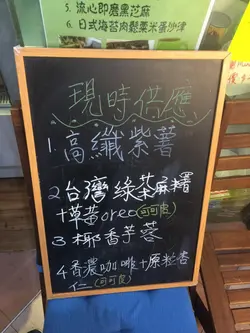 5. 流心即磨黑芝麻
6. 日式海苔肉鬆粟米蛋沙律
現時供應
1. 高纖紫薯
2 台灣綠茶麻糬
+草莓oreo (可可皮)
3 椰香芋蓉
4 香濃咖啡+原粒杏
仁 (可可皮)